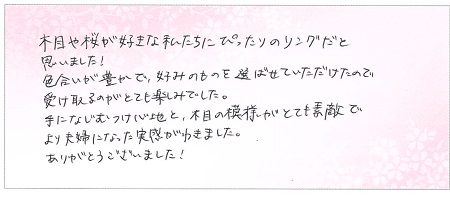 木目や桜が好きな私たちにぴったりのリングだと
思いました!
色合いが豊かで、好みのものを選ばせていただけたので
受け取るのがとても楽しみでした。
手になじむつけ心地と、木目の模様がとても素敵で
より夫婦になった実感がわきました。
ありがとうございました!